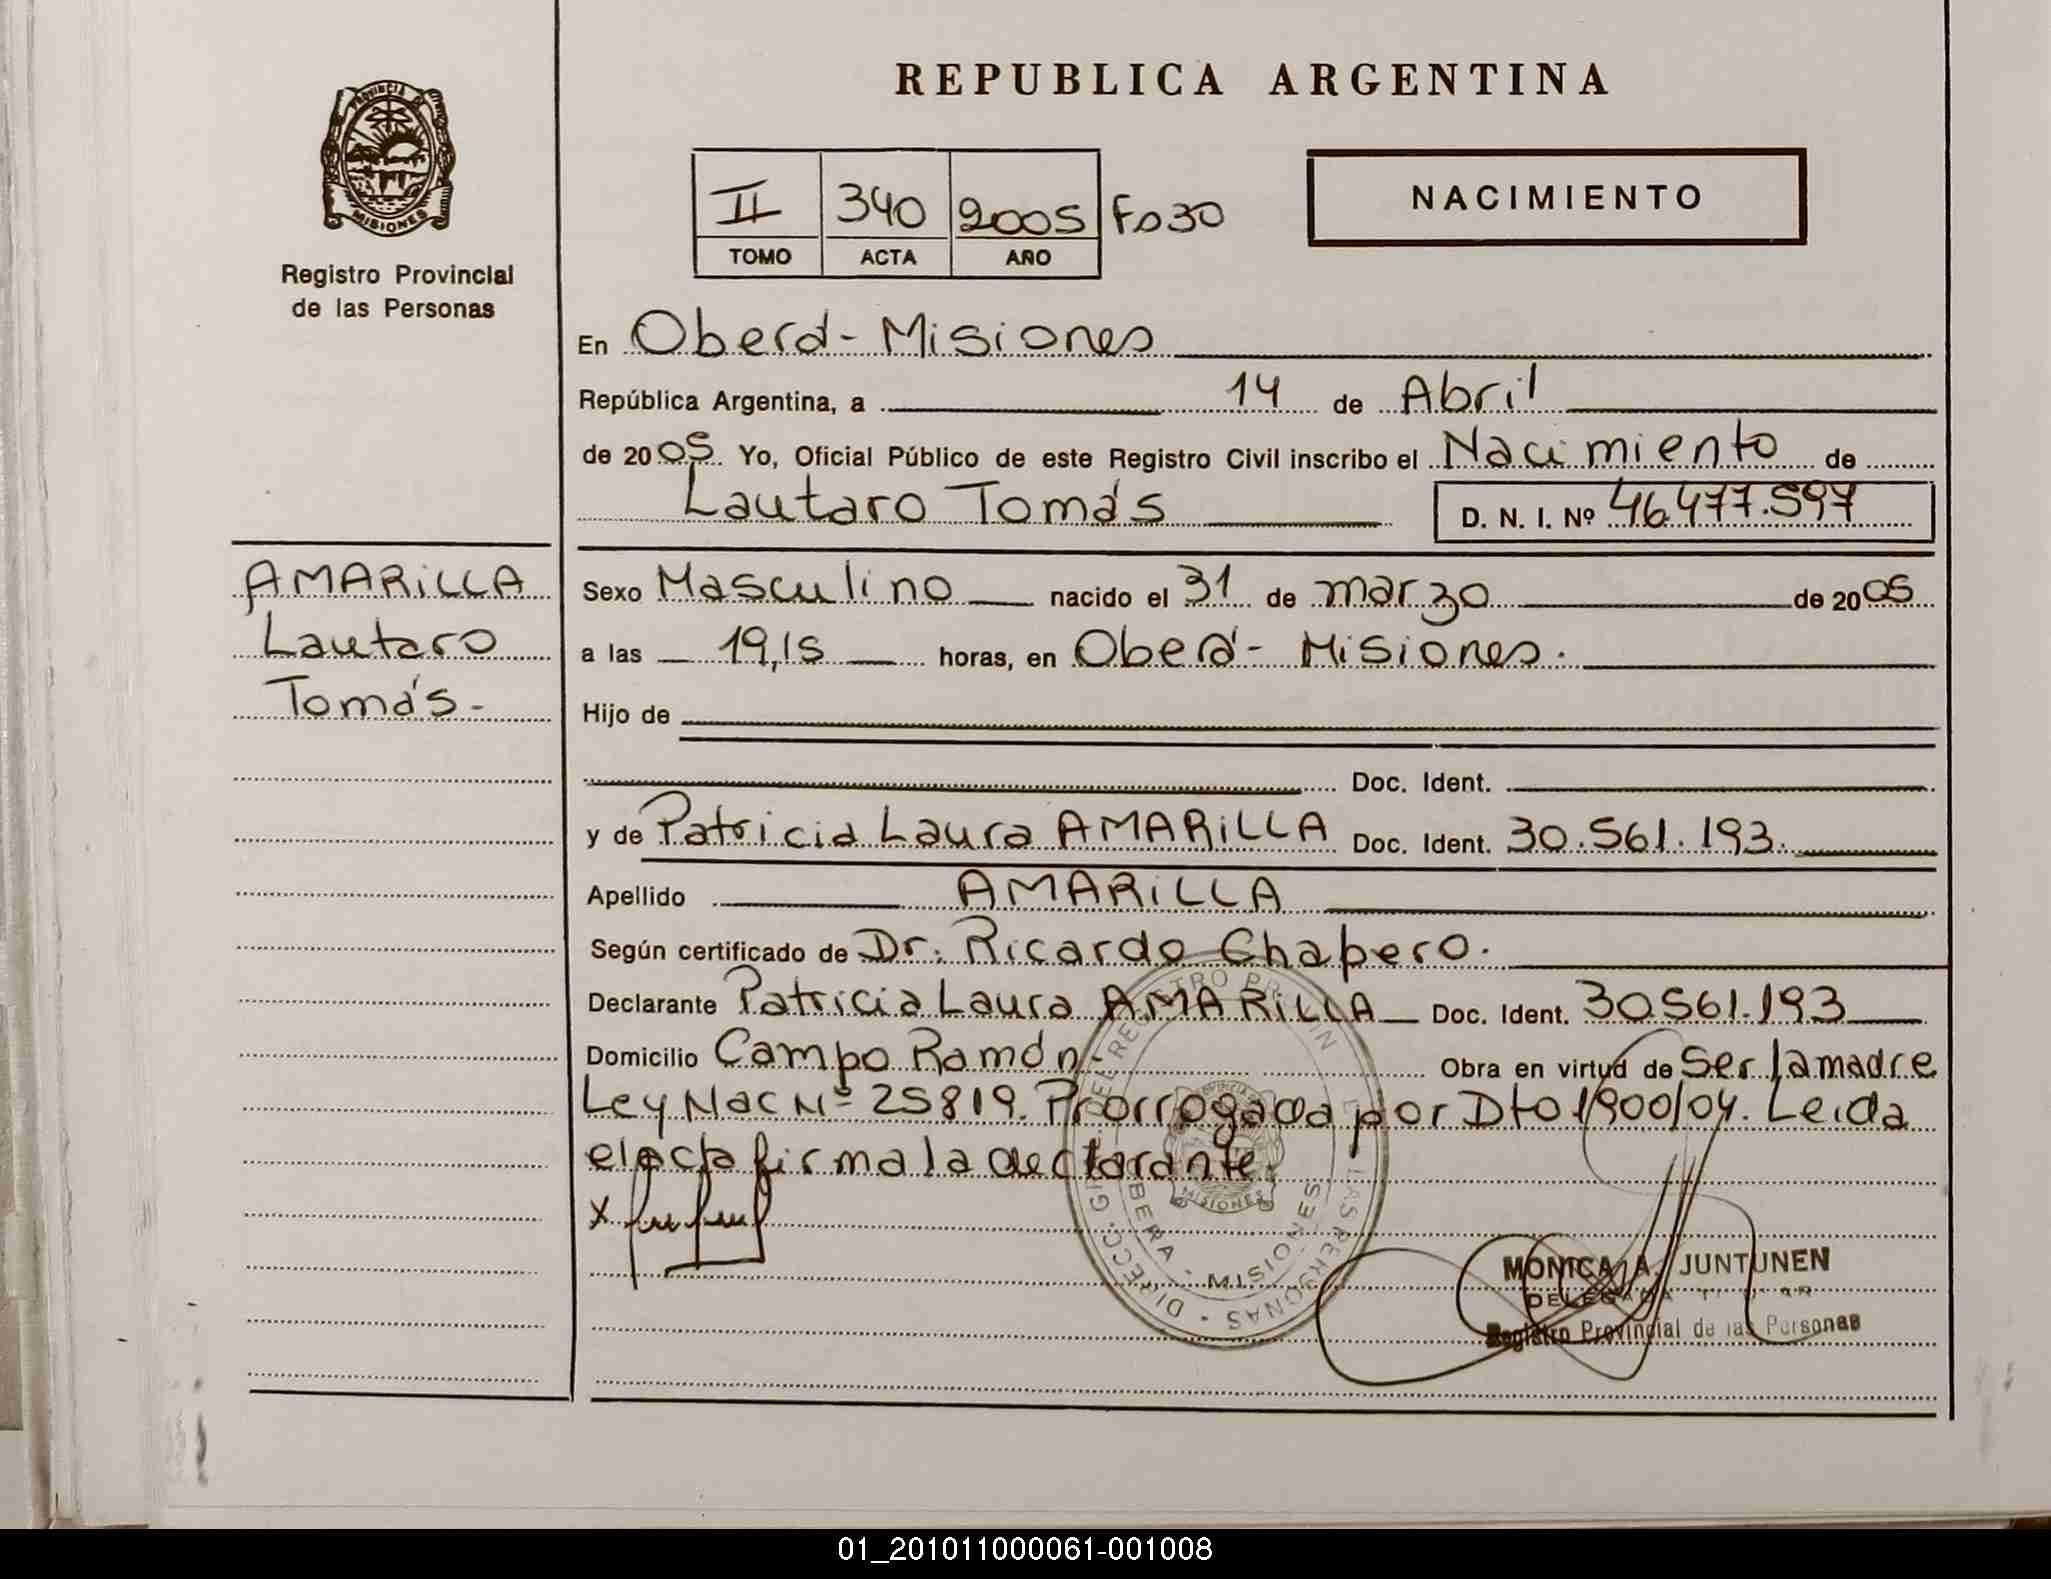 REPUBLICA ARGENTINA
PROVINCIA DE
MISIONES
Registro Provincial
de las Personas
II 340 2005 Fo 30
TOMO ACTA AÑO
NACIMIENTO
En Oberá - Misiones
República Argentina, a 14 de Abril
de 2005 Yo, Oficial Público de este Registro Civil inscribo el Nacimiento de
Lautaro Tomás D. N. I. Nº 46.477.597
AMARiLLA
Lautaro
Tomás -
Sexo Masculino nacido el 31 de marzo de 2005
a las 19,15 horas, en Oberá - Misiones.
Hijo de
Doc. Ident.
y de Patricia Laura AMARiLLA Doc. Ident. 30.561.193.
Apellido AMARiLLA
Según certificado de Dr. Ricardo Chapero.
Declarante Patricia Laura AMARiLLA Doc. Ident. 30561.193
Domicilio Campo Ramón. Obra en virtud de Ser la madre
Ley Nac Nº 25819. Prorrogada por Dto 1900/04. Leida
el acta firma la declarante.
x
DIRECC. GRAL. DEL REGISTRO PROVIN LAS PERSONAS
PROVINCIA
MISIONES
OBERA - MISIONES
MONICA A. JUNTUNEN
DELEGADA TITULAR
Registro Provincial de las Personas
01_201011000061-001008